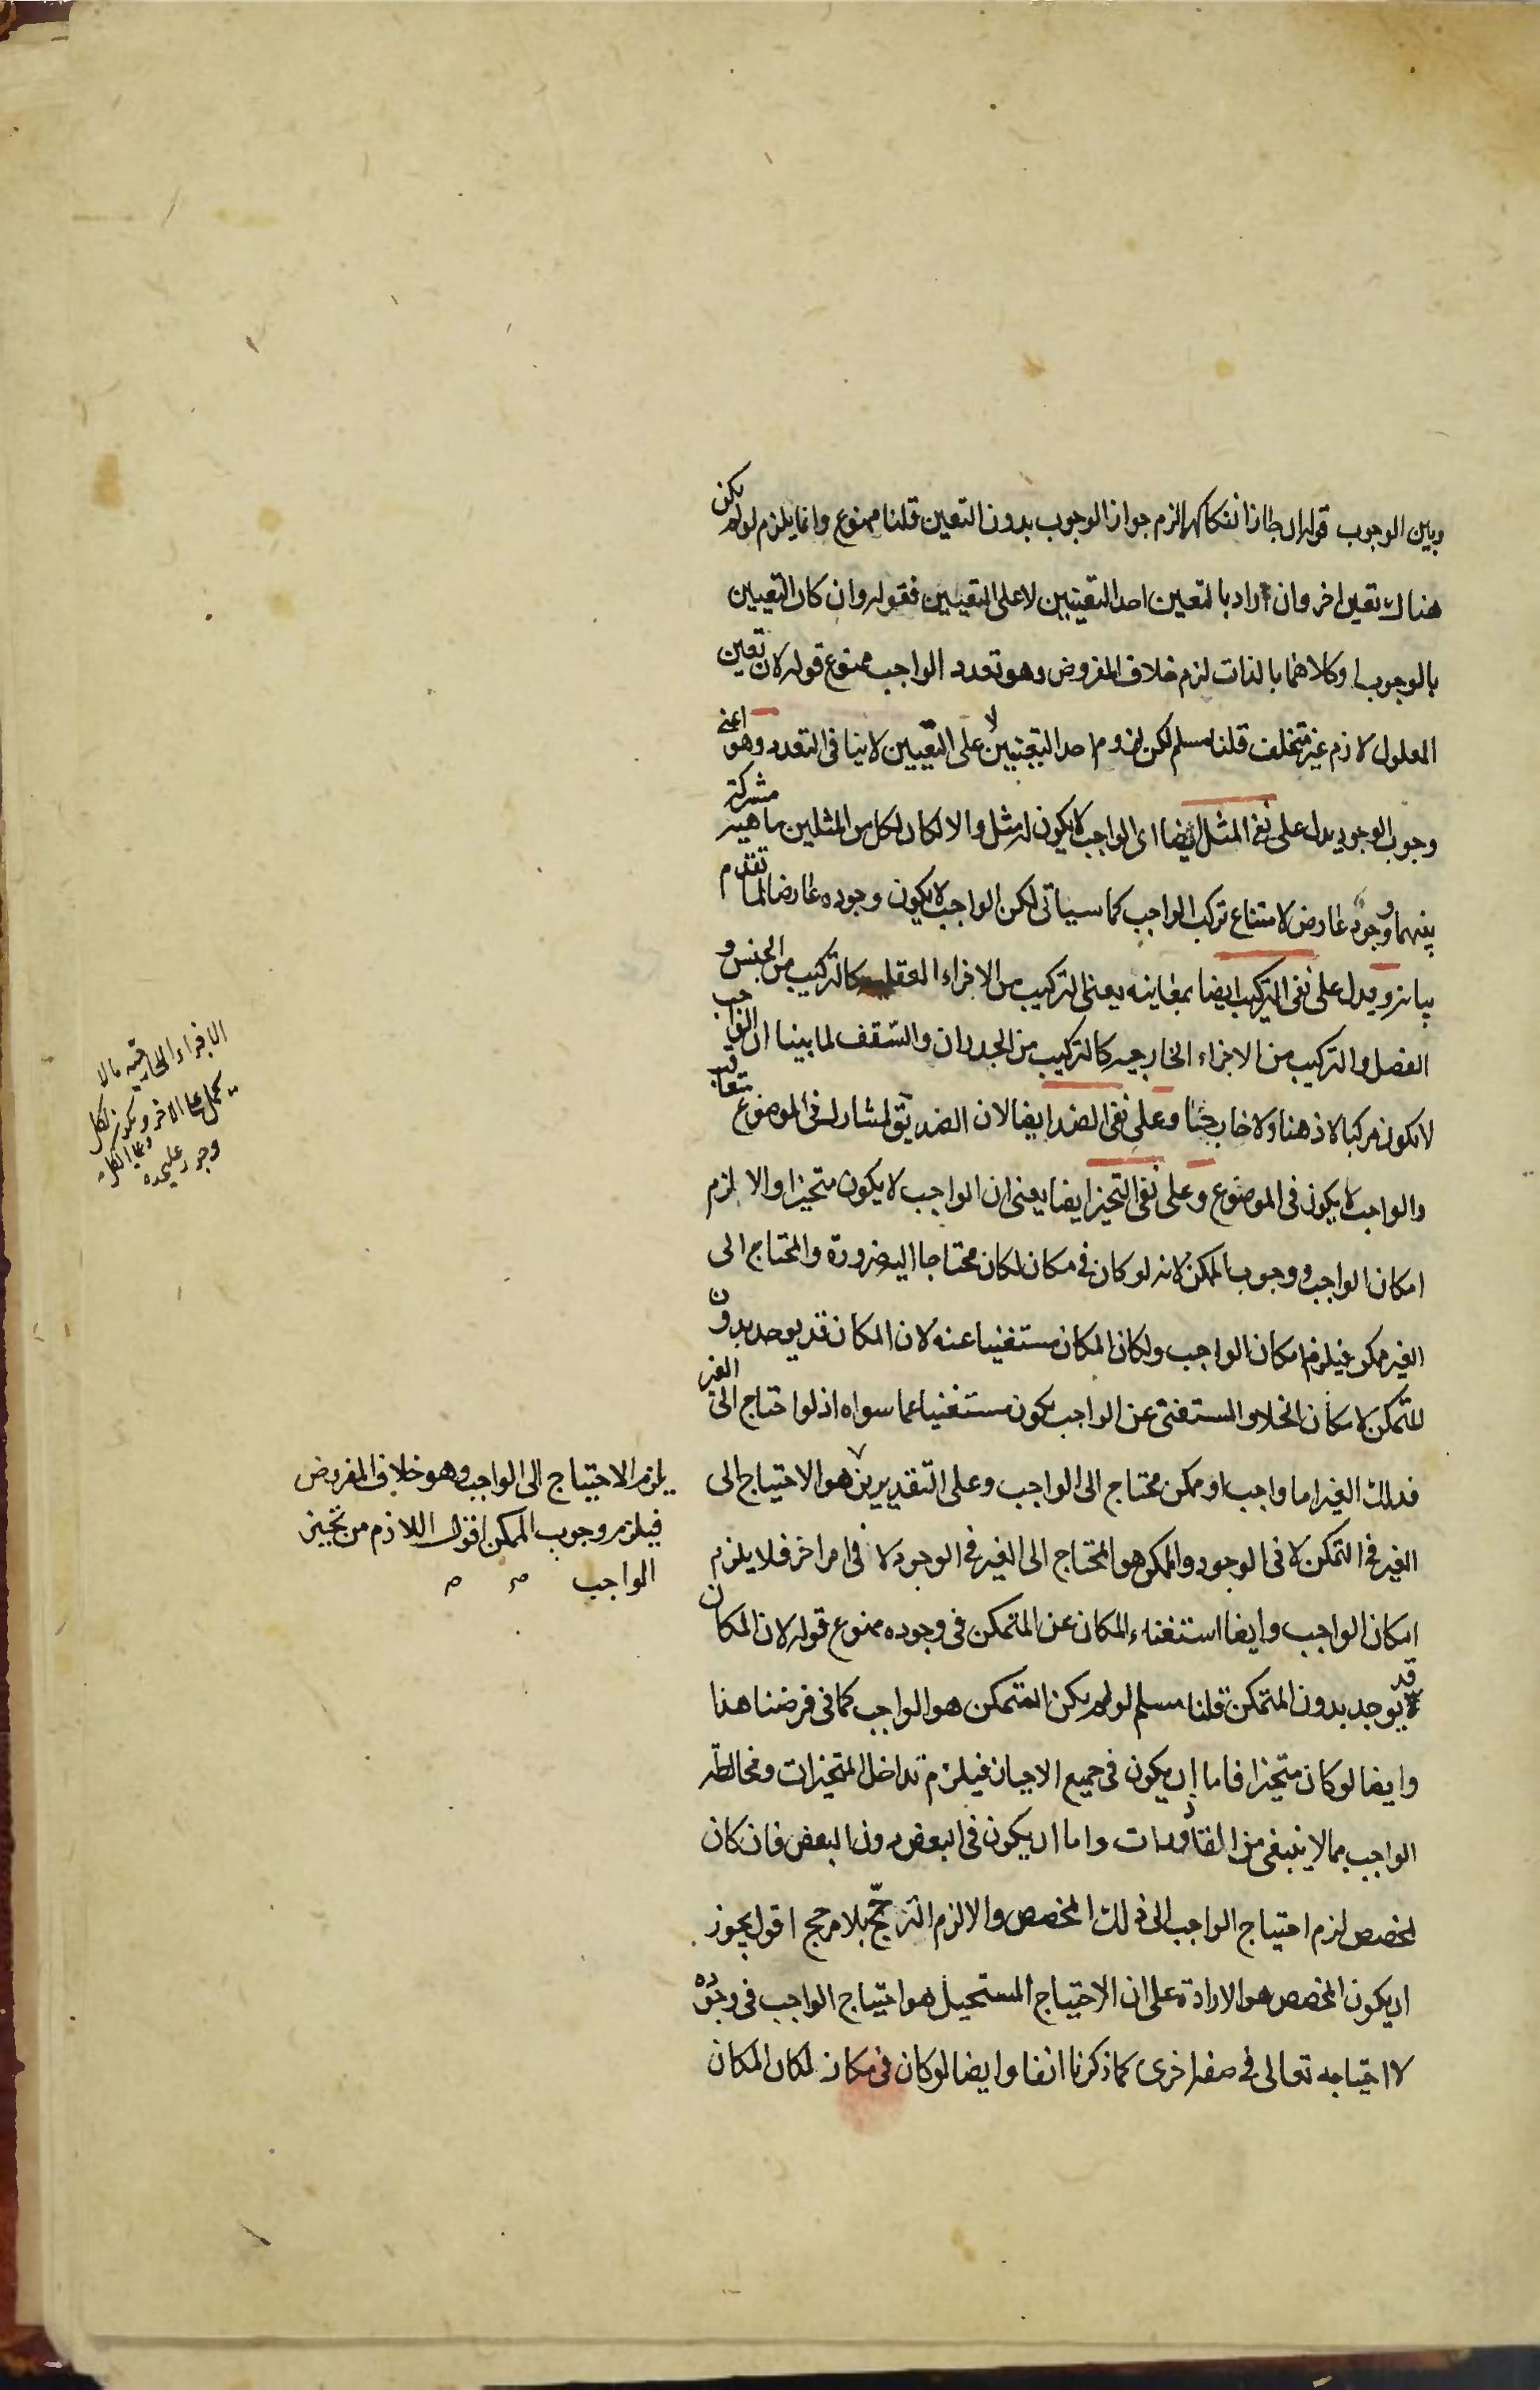 وبين الوجوب قوله ان جاز انفكاكهما لزم جواز الوجوب بدون التعين قلنا ممنوع وانما يلزم لو لم يكن
هناك تعين اخر وان اراد بالتعين احد التعينين لا على التعيين فقوله وان كان التعيين
بالوجوب او كلاهما بالذات لزم خلاف المفروض وهو تعدد الواجب ممنوع قوله لان تعين
المعلول لازم غير متخلف قلنا مسلم لكن لزوم احد التعينين لا على التعيين لا ينافى التعدد وهو اعنى
وجوب الوجود يدل على نفى المثل ايضا اى الواجب لا يكون له مثل والا لكان لكل من المثلين ماهية مشتركة
بينهما ووجود عارض لامتناع تركب الواجب كما سيأتى لكن الواجب لا يكون وجوده عارضا لما تقدم
بيانه ويدل على نفى التركيب ايضا بمعانيه يعنى التركيب من الاجزاء العقلية كالتركيب من الجنس و
الفصل والتركيب من الاجزاء الخارجية كالتركيب من الجدران والسقف لما بينا ان الواجب
لا يكون مركبا لا ذهنا ولا خارجا وعلى نفى الضد ايضا لان الضد يق لمشارك فى الموضوع معاقب
والواجب لا يكون فى الموضوع وعلى نفى التحيز ايضا يعنى ان الواجب لا يكون متحيزا والا لزم
امكان الواجب ووجوب الممكن لانه لو كان فى مكان لكان محتاجا اليه ضرورة والمحتاج الى
الغير ممكن فيلزم امكان الواجب ولكان المكان مستغنيا عنه لان المكان قد يوجد بدون
المتمكن لامكان الخلاء والمستغنى عن الواجب يكون مستغنيا عما سواه اذ لو احتاج الى الغير
فذلك الغير اما واجب او ممكن محتاج الى الواجب وعلى التقديرين هو الاحتياج الى
يلزم الاحتياج الى الواجب وهو خلاف المفروض
فيلزم وجوب الممكن اقول اللازم من تحيز
الواجب
الغير فى التمكن لا فى الوجود والممكن هو المحتاج الى الغير فى الوجود لا فى امر اخر فلا يلزم
امكان الواجب وايضا استغناء المكان عن المتمكن فى وجوده ممنوع قوله لان المكان
قد يوجد بدون المتمكن قلنا مسلم لو لم يكن المتمكن هو الواجب كما فى فرضنا هذا
وايضا لو كان متحيزا فاما ان يكون فى جميع الاحيان فيلزم تداخل المتحيزات ومخالطة
الواجب بما لا ينبغى من القاذورات واما ان يكون فى البعض دون البعض فان كان
لمخصص لزم احتياج الواجب الى ذلك المخصص والا لزم الترجح بلا مرجح اقول يجوز
ان يكون المخصص هو الارادة على ان الاحتياج المستحيل هو احتياج الواجب فى وجوده
لا احتياجه تعالى فى صفة اخرى كما ذكرنا انفا وايضا لو كان فى مكان لكان المكان
الاجزاء الخارجية ما لا
يحمل على الاخر ويكون لكل
وجود عليحده